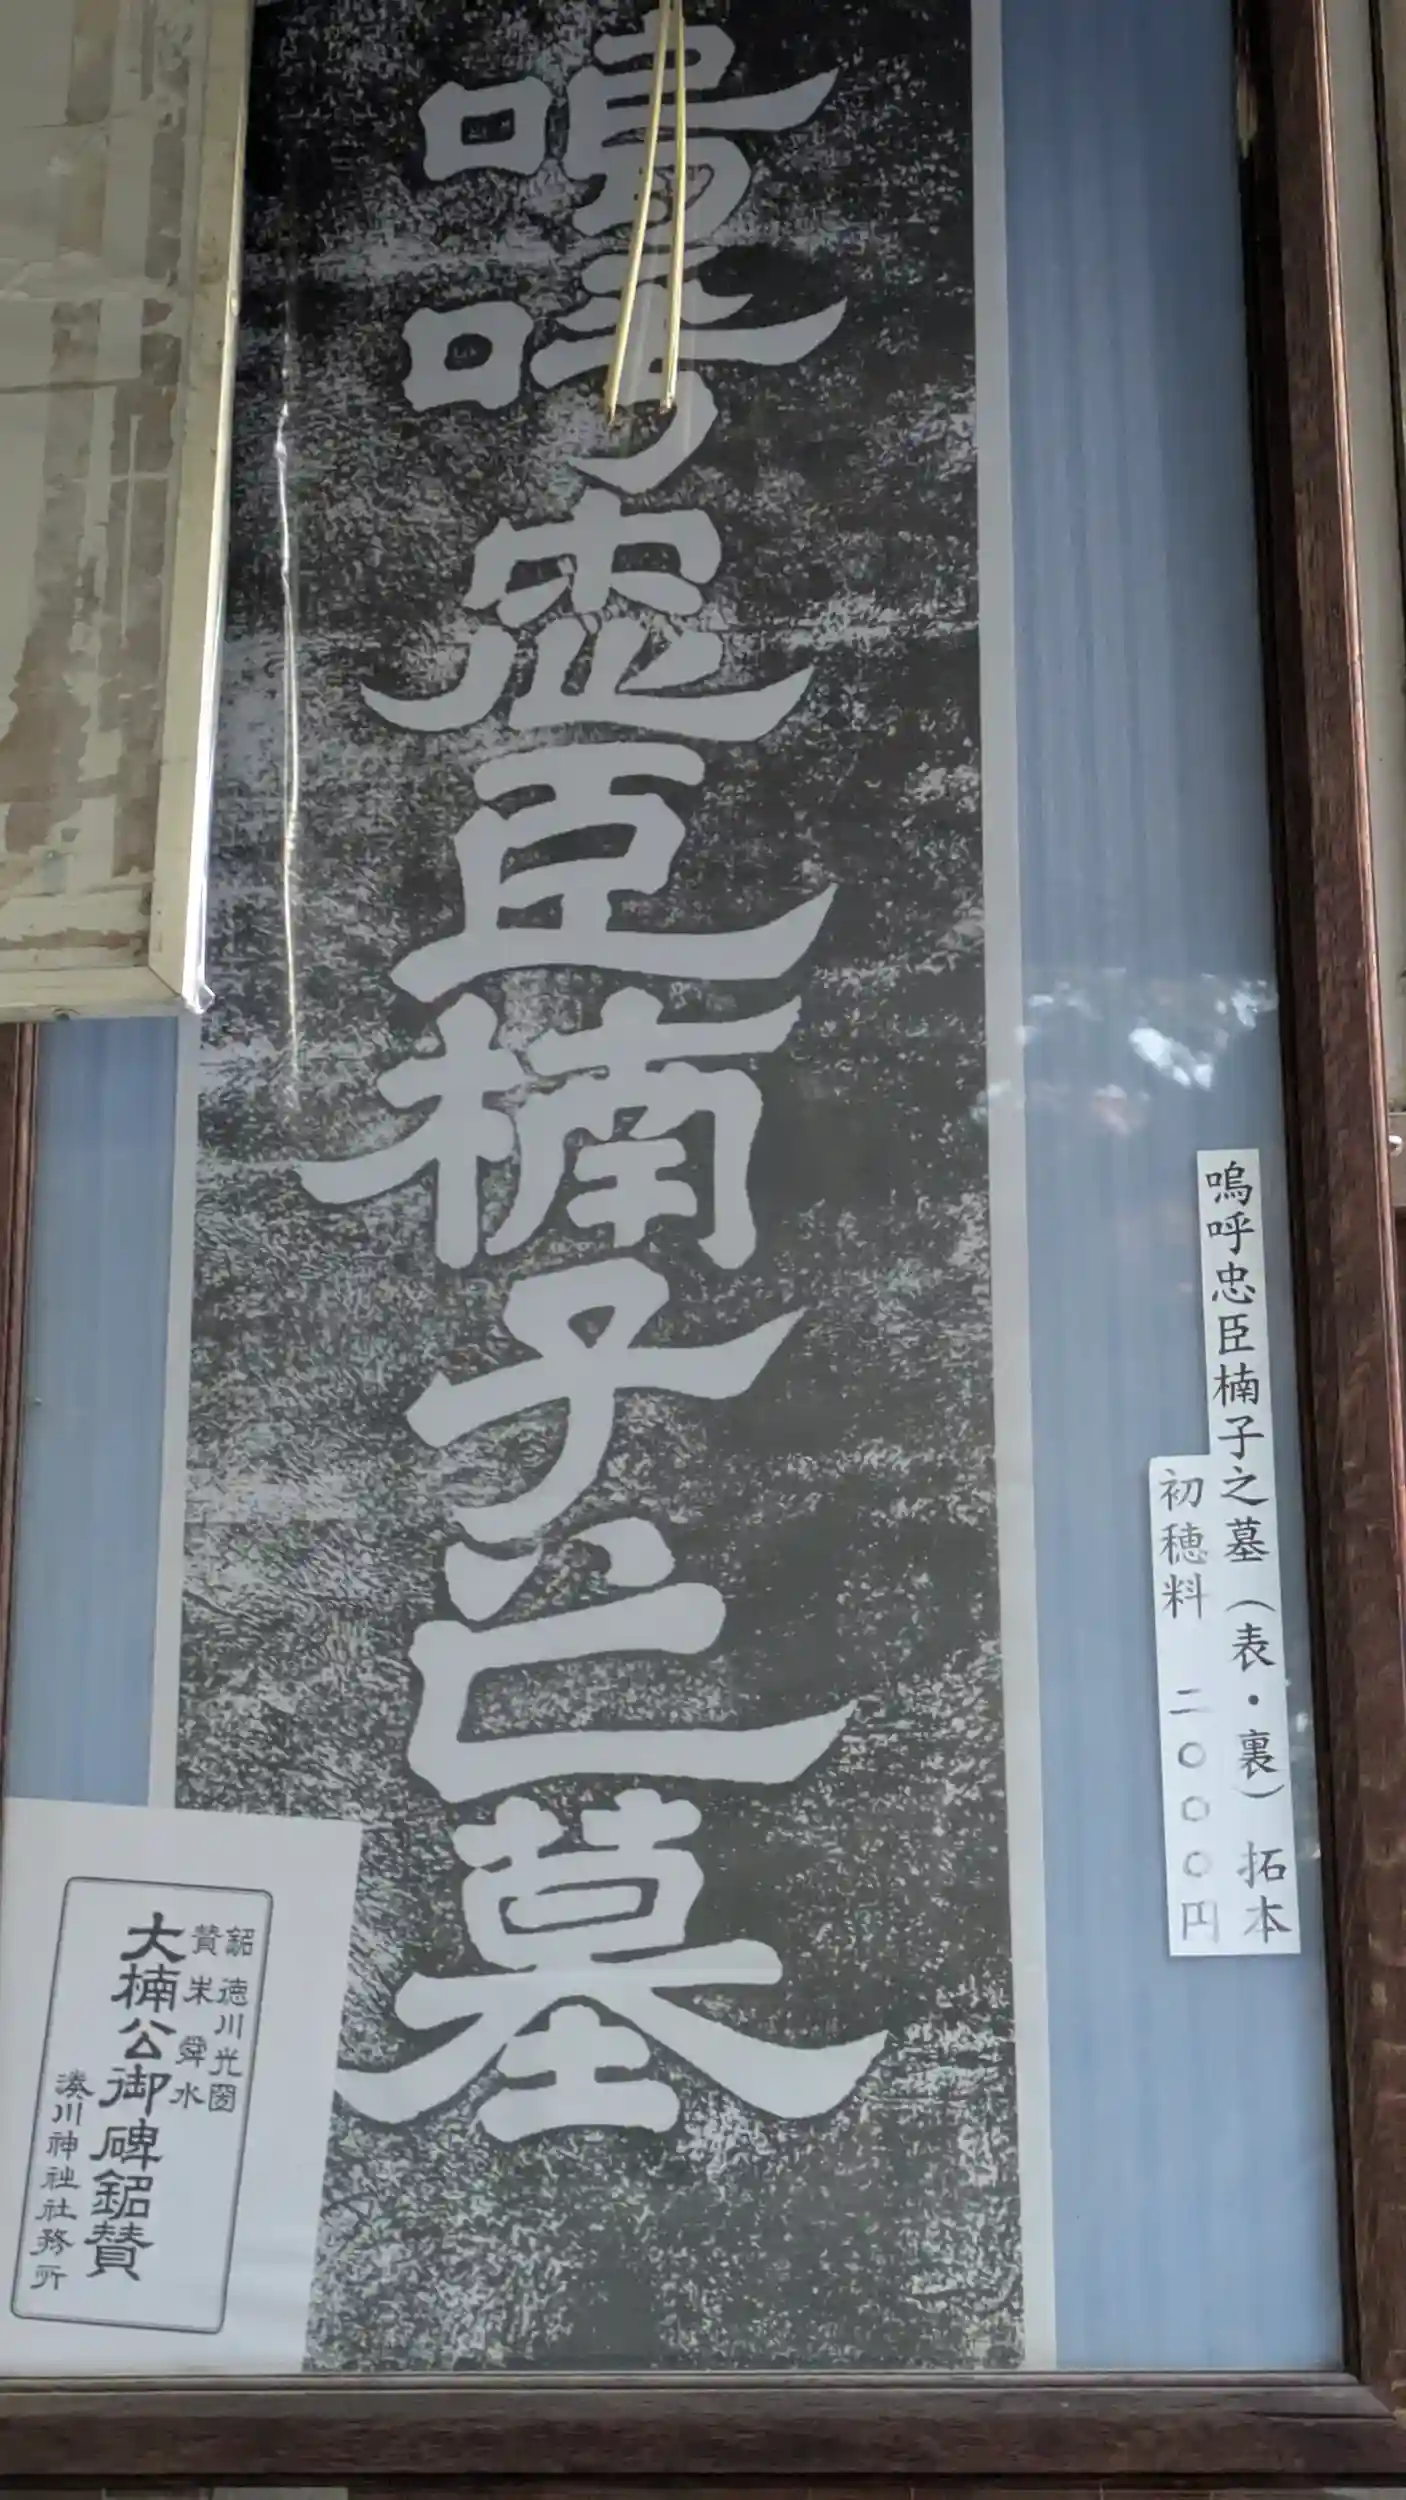 嗚呼忠臣楠子之墓
嗚呼忠臣楠子之墓（表・裏）拓本
初穂料　二〇〇〇円
銘　徳川光圀
賛　朱舜水
大楠公御碑銘賛
湊川神社社務所